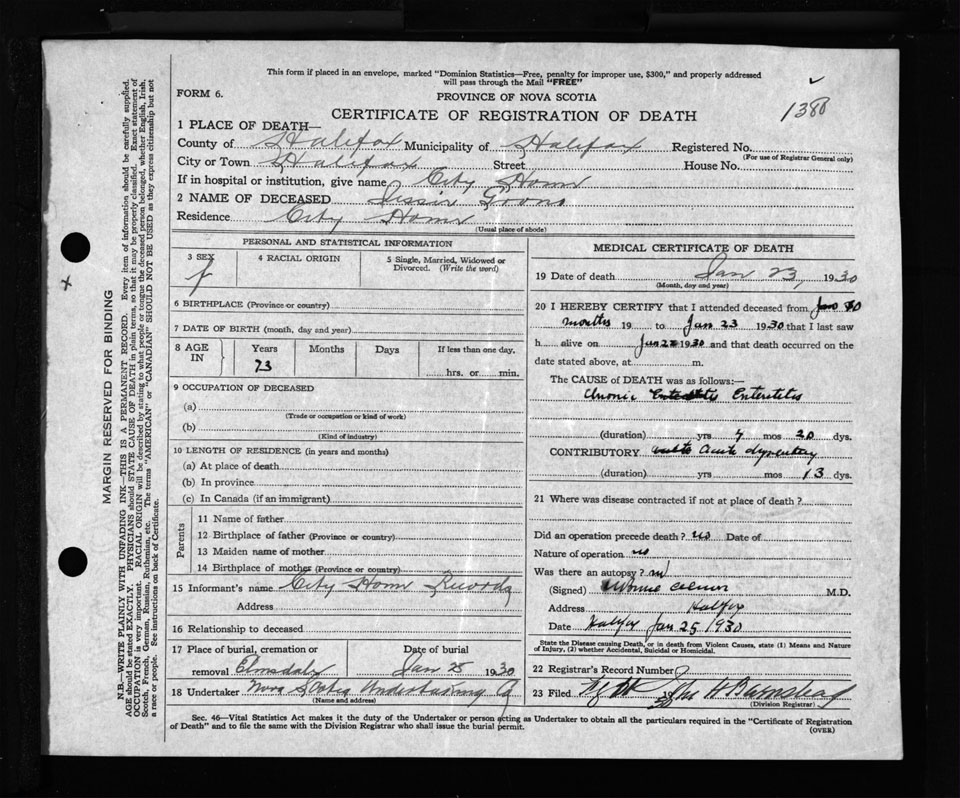 This form if placed in an envelope, marked "Dominion Statistics—Free, penalty for improper use, $300," and properly addressed
will pass through the Mail "FREE"
FORM 6.
PROVINCE OF NOVA SCOTIA
1380
CERTIFICATE OF REGISTRATION OF DEATH
1 PLACE OF DEATH—
County of Halifax Municipality of Halifax Registered No.
(For use of Registrar General only)
City or Town Halifax Street House No.
If in hospital or institution, give name City Home
2 NAME OF DECEASED Jessie
Residence City Home
(Usual place of abode)
PERSONAL AND STATISTICAL INFORMATION
3 SEX 4 RACIAL ORIGIN 5 Single, Married, Widowed or
Divorced. (Write the word)
f
6 BIRTHPLACE (Province or country)
7 DATE OF BIRTH (month, day and year)
8 AGE IN Years Months Days If less than one day.
73 hrs. or min.
9 OCCUPATION OF DECEASED
(a)
(Trade or occupation or kind of work)
(b)
(Kind of industry)
10 LENGTH OF RESIDENCE (in years and months)
(a) At place of death
(b) In province
(c) In Canada (if an immigrant)
Parents
11 Name of father
12 Birthplace of father (Province or country)
13 Maiden name of mother
14 Birthplace of mother (Province or country)
15 Informant's name City Home Records
Address
16 Relationship to deceased
17 Place of burial, cremation or Date of burial
removal Elmsdale Jan 25 1930
18 Undertaker Nova Scotia Undertaking Co
(Name and address)
MEDICAL CERTIFICATE OF DEATH
19 Date of death Jan 23, 1930
(Month, day and year)
20 I HEREBY CERTIFY that I attended deceased from
months 19 to Jan 23 1930 that I last saw
h alive on Jan 22 1930 and that death occurred on the
date stated above, at m.
The CAUSE of DEATH was as follows:—
Chronic Enteritis
(duration) yrs 7 mos 20 dys.
CONTRIBUTORY acute dysentery
(duration) yrs mos 13 dys.
21 Where was disease contracted if not at place of death?
Did an operation precede death? no Date of
Nature of operation no
Was there an autopsy? no
(Signed) M.D.
Address Halifax
Date Halifax Jan 25 1930
State the Disease causing Death, or in death from Violent Causes, state (1) Means and
Nature of Injury, (2) whether Accidental, Suicidal or Homicidal.
22 Registrar's Record Number
23 Filed 19
(Division Registrar)
Sec. 46—Vital Statistics Act makes it the duty of the Undertaker or person acting as Undertaker to obtain all the particulars required in the "Certificate of Registration
of Death" and to file the same with the Division Registrar who shall issue the burial permit.
(OVER)
MARGIN RESERVED FOR BINDING
N.B.—WRITE PLAINLY WITH UNFADING INK—THIS IS A PERMANENT RECORD. Every item of information should be carefully supplied.
AGE should be stated EXACTLY. PHYSICIANS should STATE CAUSE OF DEATH in plain terms, so that it may be properly classified. Exact statement of
OCCUPATION is very important. RACIAL ORIGIN will be described by stating to what people or tongue the deceased person belonged, whether English, Irish,
Scotch, French, German, Russian, Ruthenian, etc. The terms "AMERICAN" or "CANADIAN" SHOULD NOT BE USED as they express citizenship but not
a race or people. See instructions on back of Certificate.